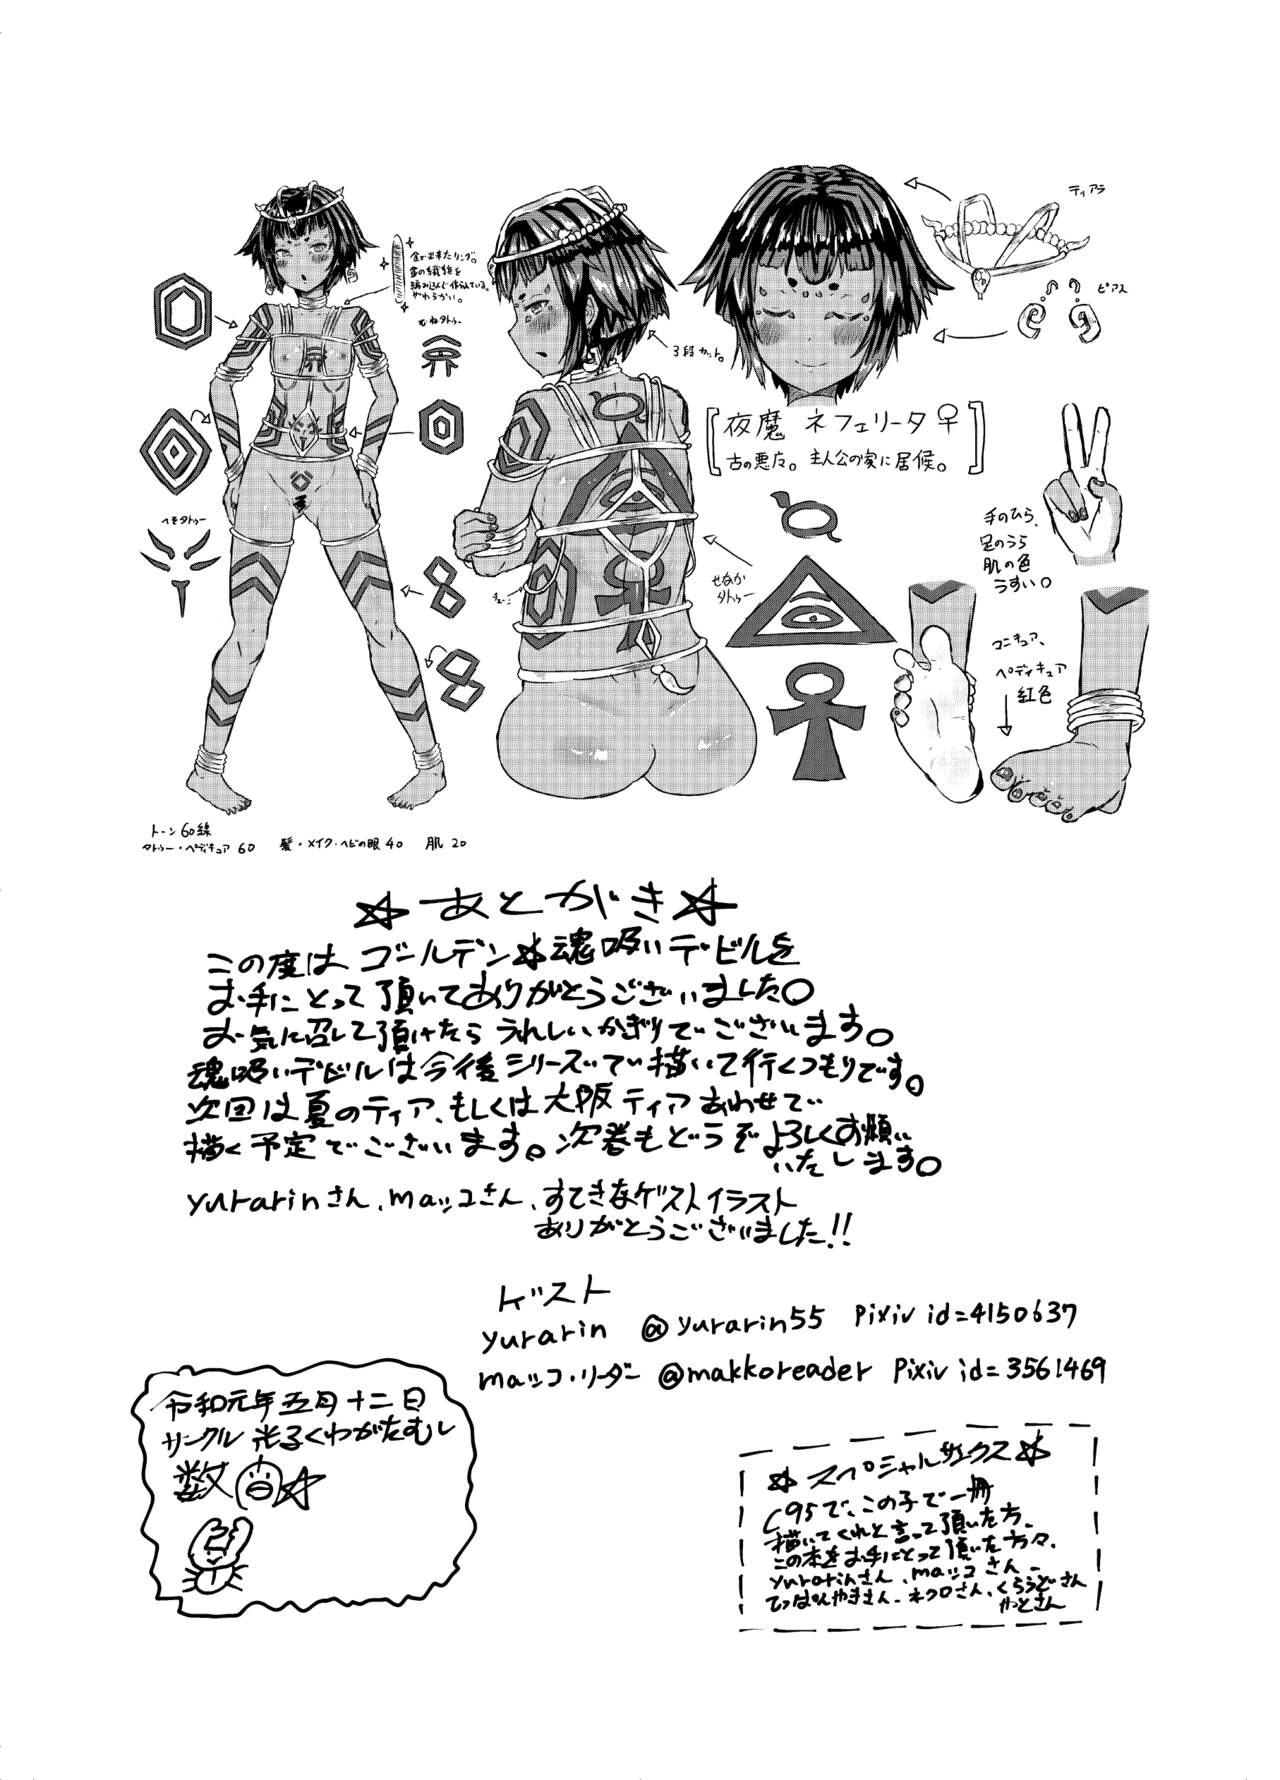 ティアラ
金で出来たリング。
金の繊維を
編み込んで作られている。
やわらかい。
むねタトゥー
ピアス
3段カット。
夜魔 ネフェリータ♀
古の悪魔。主人公の家に居候。
へそタトゥー
手のひら、
足のうら
肌の色
うすい。
せなか
タトゥー
マニキュア、
ペディキュア
紅色
トーン60線
タトゥー・ペディキュア 60 髪・メイク・ヘビの眼 40 肌 20
☆あとがき☆
この度はゴールデン☆魂吸いデビルを
お手にとって頂いてありがとうございました。
お気に召して頂けたらうれしいかぎりでございます。
魂吸いデビルは今後シリーズで描いて行くつもりです。
次回は夏のティア、もしくは大阪ティアあわせで
描く予定でございます。次巻もどうぞよろしくお願い
いたします。
yurarinさん、maッコさん、すてきなゲストイラスト
ありがとうございました!!
ゲスト
yurarin @yurarin55 Pixiv id=4150637
maッコ・リーダー @makkoreader Pixiv id=3561469
令和元年五月十二日
サークル 光子くわがたむし
数
☆スペシャルサンクス☆
C95で、この子で一冊
描いてくれと言って頂いた方、
この本をお手にとって頂いた方々、
yurarinさん、maッコさん、
てっぱんやきさん、ネクロさん、くらうどさん
やっとさん